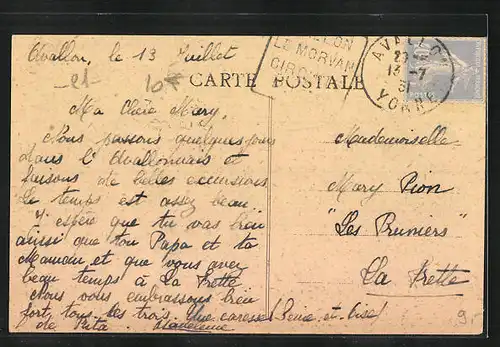 Avallon, le 13 Juillet
CARTE POSTALE
AVALLON
LE MORVAN
AVALLON
13 -7
31
YONNE
Ma Chère Mary,
Nous passons quelques jours
dans l'Avallonnais et
faisons de belles excursions
Le temps est assez beau
J'espère que tu vas bien
aussi que ton Papa et ta
Maman et que vous avez
beau temps à La Frette
Nous vous embrassons bien
fort tous les trois. Une caresse
de Rita. Madeleine
Mademoiselle
Mary Pion
"Les Pruniers"
La Frette
Seine-et-Oise
10
9.-